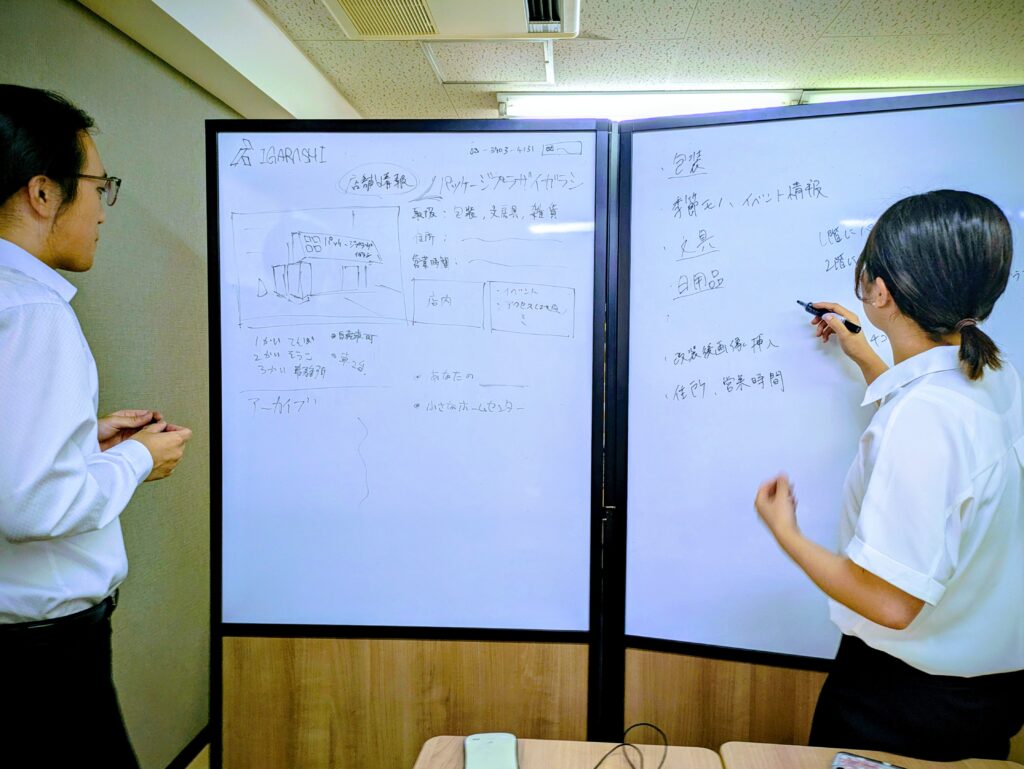 IGARASHI
03-3403-4131
店舗情報
パッケージプラザイガラシ
取扱：包装、文房具、雑貨
住所：
営業時間：
パッケージプラザ
店内
・イベント
・アクセス
1かい てんぽ
2かい そうこ
3かい 事務所
・あなたの
・小さなホームセンター
アーカイブ
・包装
・季節モノ、イベント情報
・文具
・日用品
・改装後画像挿入
・住所、営業時間
1階に
2階に